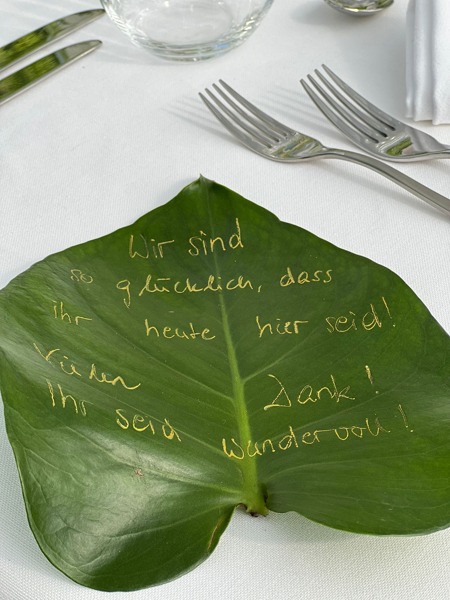 Wir sind
so glücklich, dass
ihr heute hier seid!
Vielen Dank!
Ihr seid wundervoll!